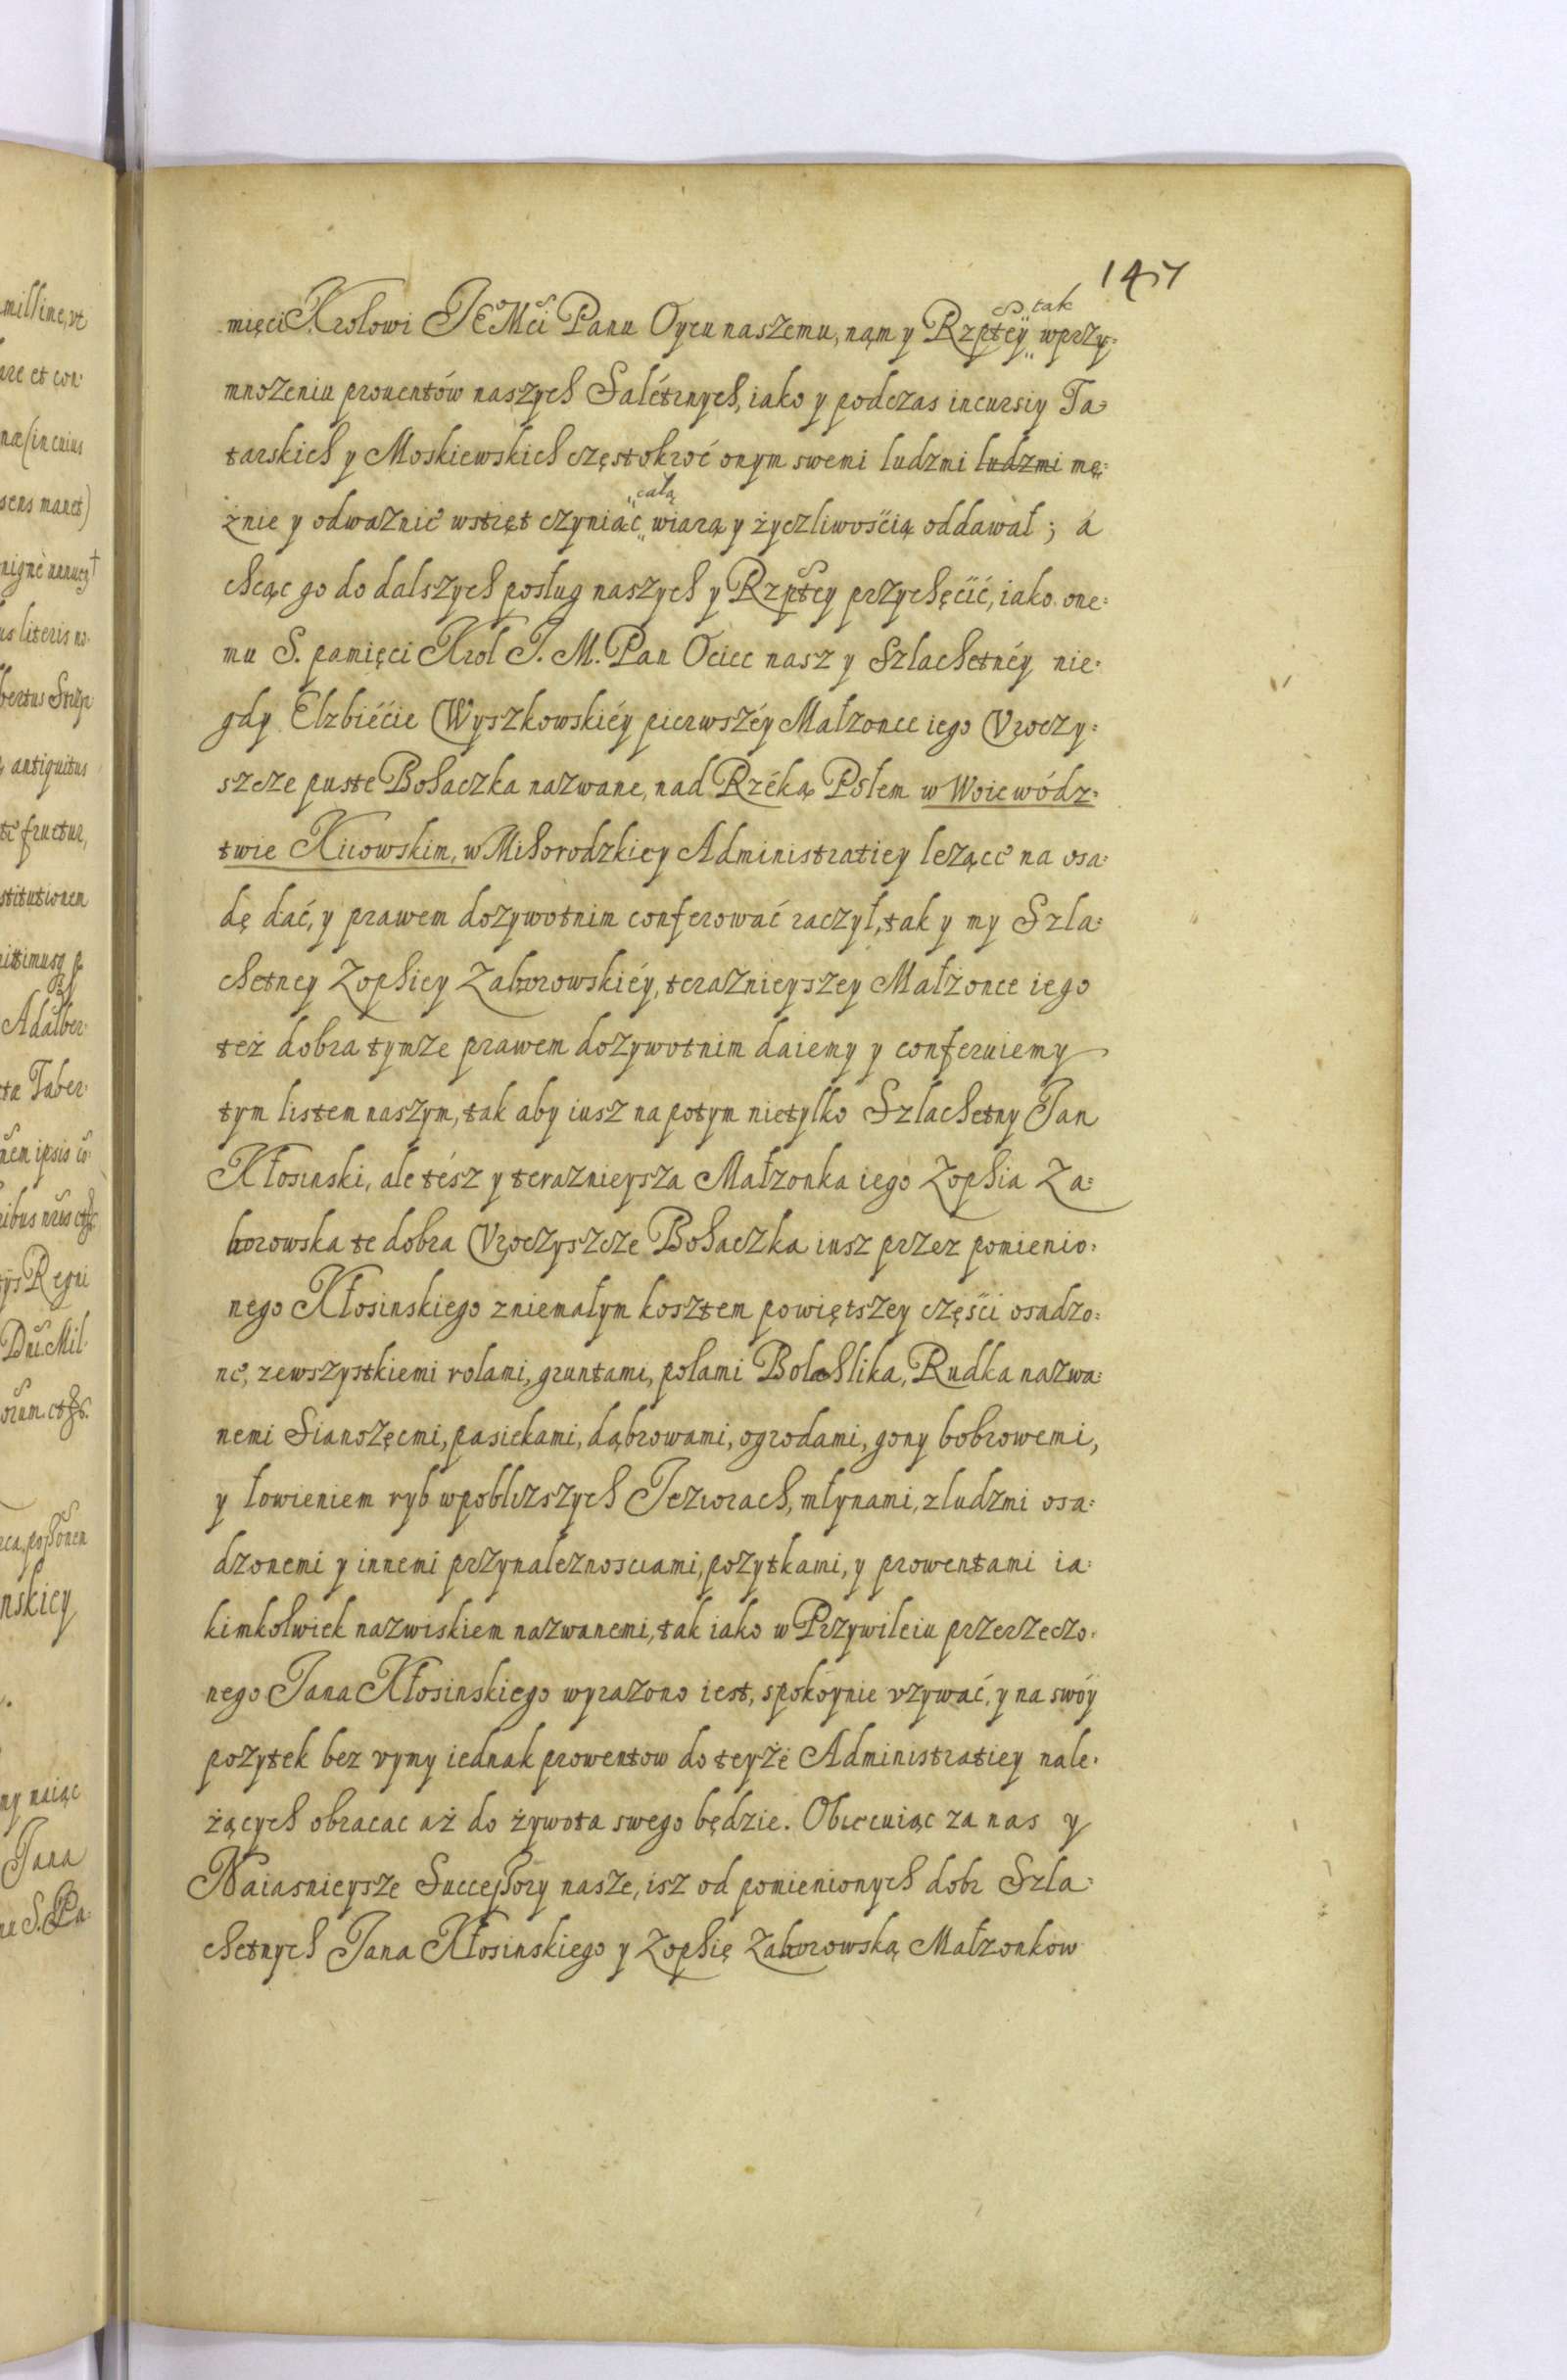 147
mięci Krolowi JEMci Panu Oycu naszemu, nąm y Rzptey tak wprzy=
mnozeniu prouentów naszych Salétrnych, iako y podczas incursiy Ta=
tarskich y Moskiewskich częstokroć onym swemi ludzmi ludzmi mę=
żnie y odwaznie wstręt czyniąc całą wiarą y życzliwością oddawał; á
chcąc go do dalszych posług naszych y Rzptey przychęcić, iako one=
mu S. pamięci Krol J. M. Pan Ociec nasz y Szlachetnéy nie=
gdy Elzbiécie Wyszkowskiéy pierwszéy Małzonce iego Vroczy=
szcze puste Bohaczka nazwane, nad Rzéką Psłem w Woiewódz=
twie Kiiowskim, w Mihorodzkiey Administratiey lezące na osa=
dę dać, y prawem dozywotnim conferować raczył, tak y my Szla=
chetney Zophiey Zaborowskiéy, teraznieyszey Małżonce iego
też dobra tymze prawem dozywotnim daiemy y conferuiemy
tym listem naszym, tak aby iusz na potym nietylko Szlachetny Jan
Kłosinski, ale tész y teraznieysza Małzonka iego Zophia Za=
borowska te dobra Vroczyszcze Bohaczka iusz przez pomienio=
nego Kłosinskiego zniemałym kosztem powiętszey części osadzo=
ne, zewszystkiemi rolami, gruntami, polami Rudka nazwa=
nemi Sianozęcmi, pasiekami, dąbrowami, ogrodami, gony bobrowemi,
y łowieniem ryb wpoblizszych Jeziorach, młynami, zludzmi osa=
dzonemi y innemi przynaleznosciami, pozytkami, y prowentami ia=
kimkolwiek nazwiskiem nazwanemi, tak iako w Przywileiu przerzeczo=
nego Jana Kłosinskiego wyrazono iest, spokoynie vzywać, y na swóy
pozytek bez vymy iednak prowentow do teyże Administratiey nale=
żących obracac aż do żywota swego będzie. Obiecuiąc za nas y
Naiasnieysze Successory nasze, isz od pomienionych dobr Szla=
chetnych Jana Kłosinskiego y Zophię Zaborowską Małzonkow